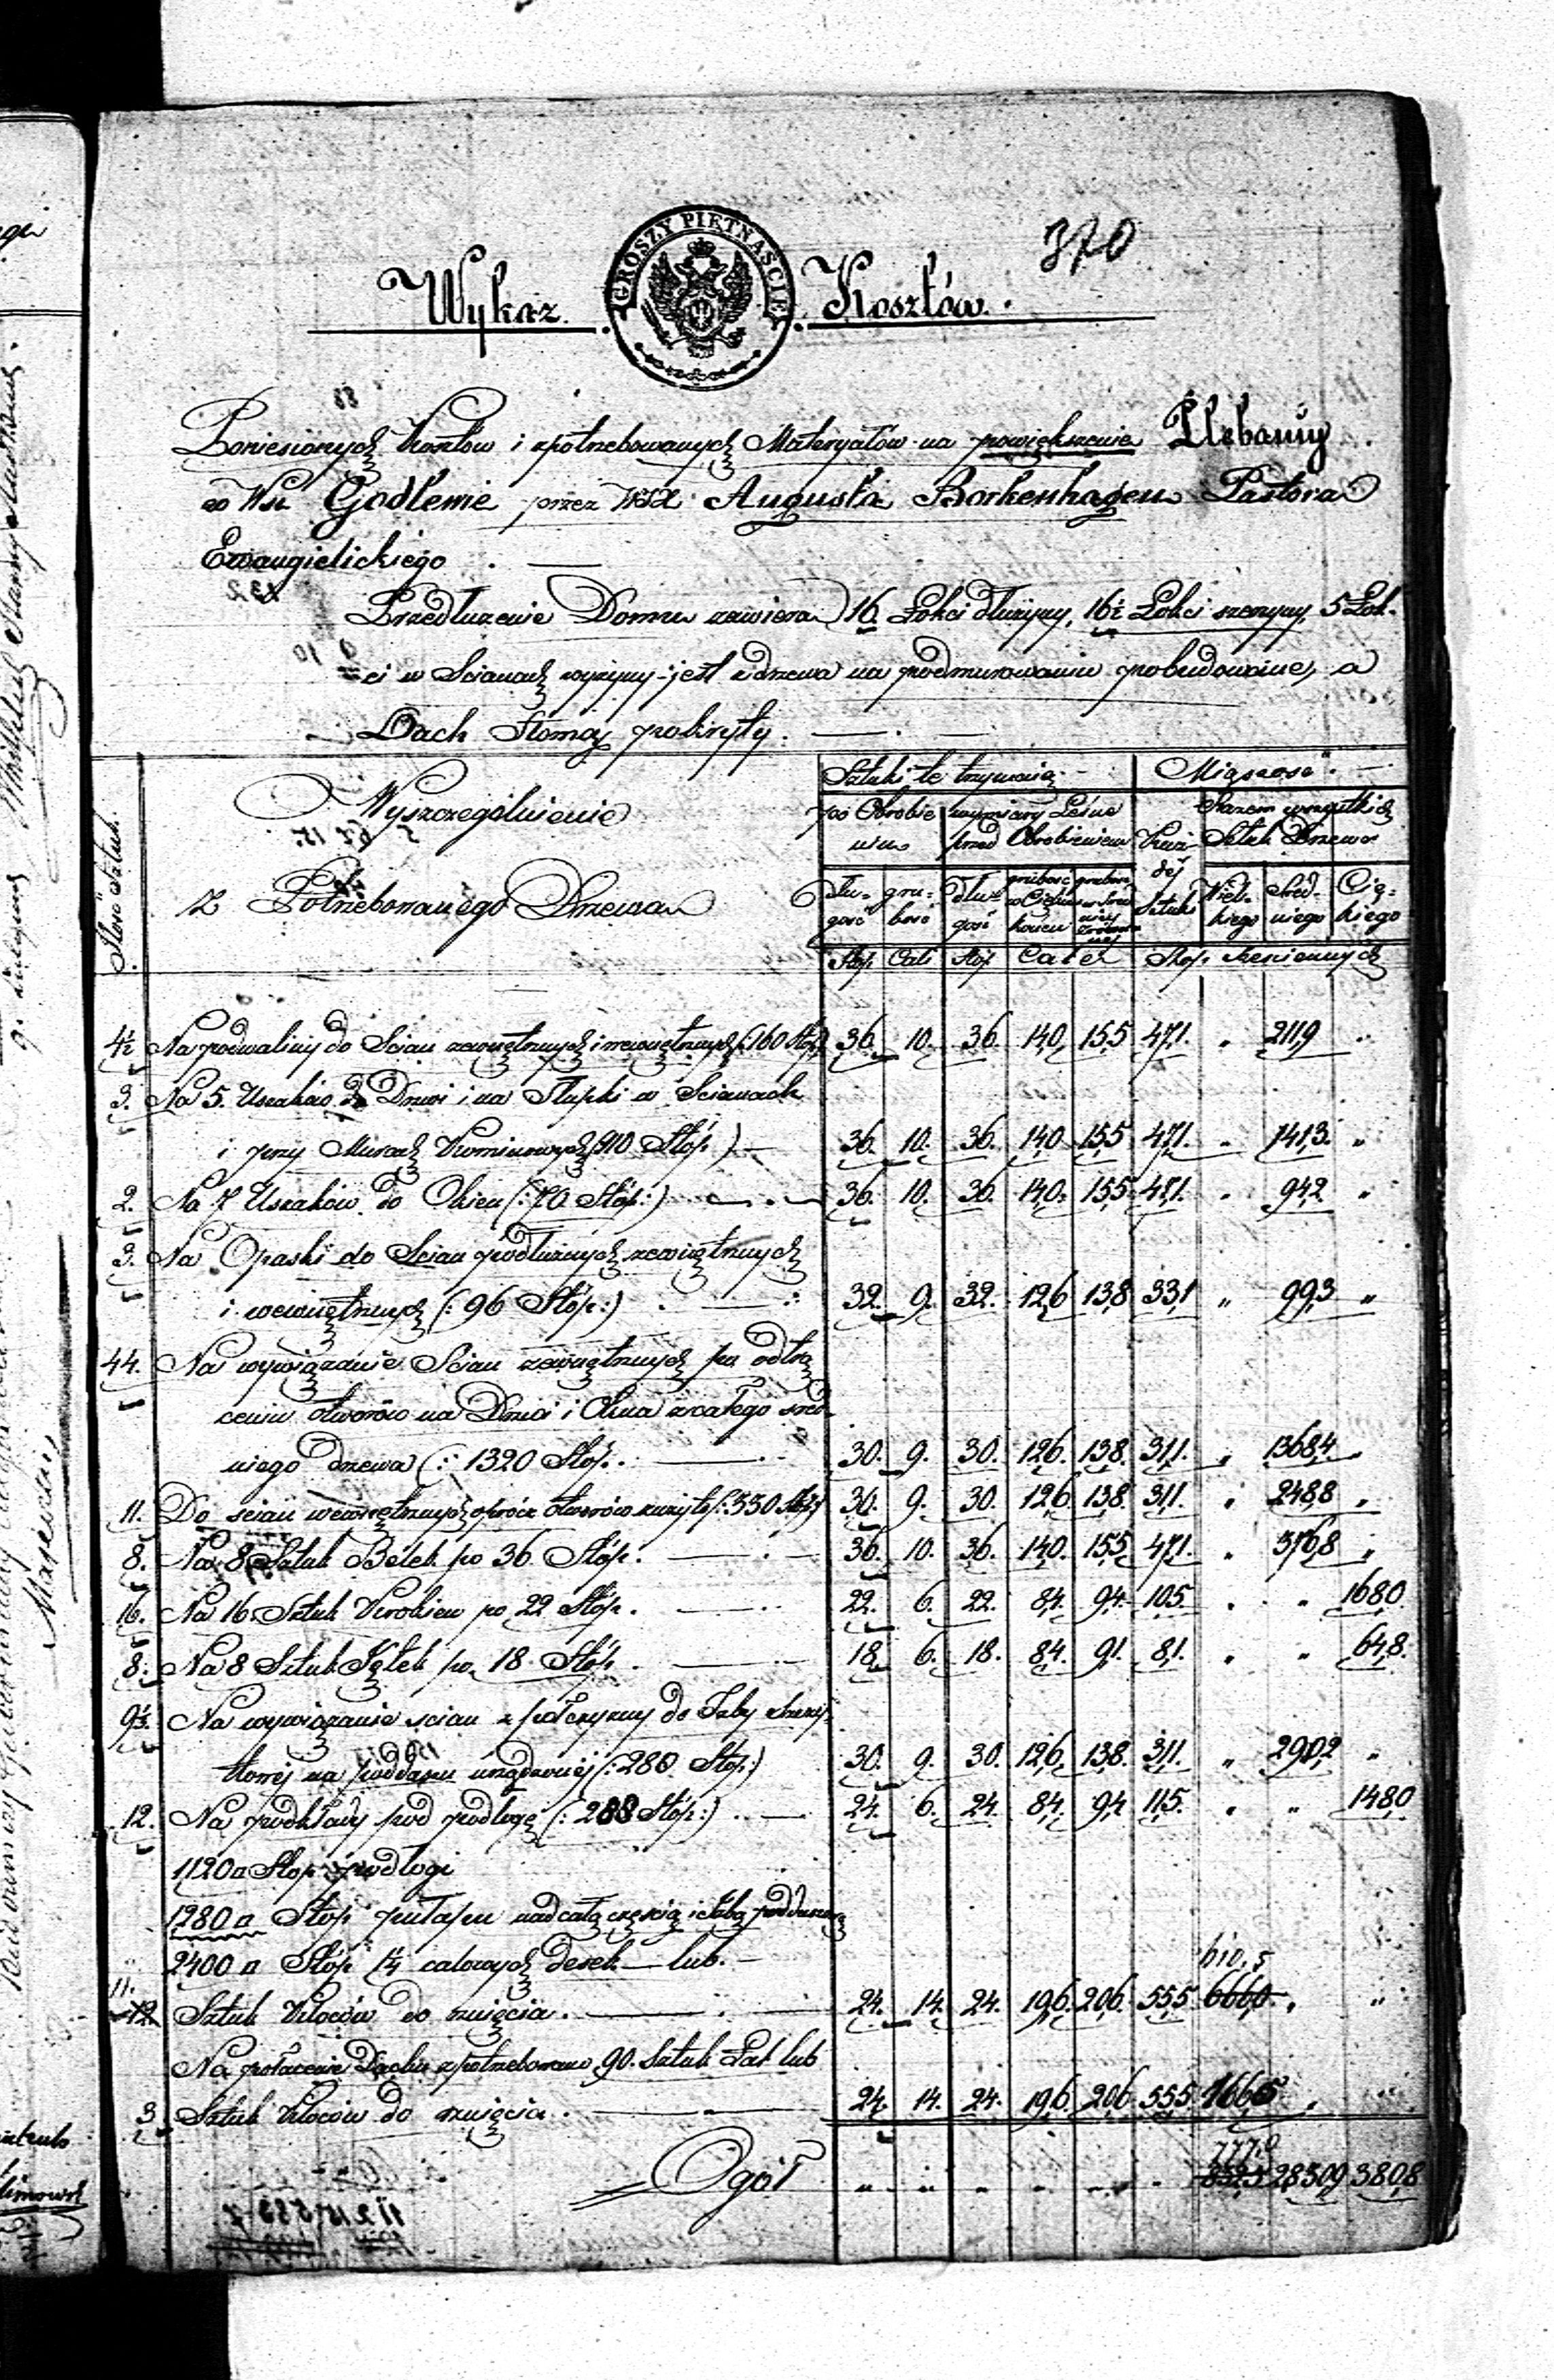 370
Wykaz Kosztów.
GROSZY PIĘTNAŚCIE
Poniesionych Kosztów i zpotrzebowanych Materyałów na powiększenie Plebanij
we Wsi Godlenie przez Augusta Borkenhagen Pastora
Ewangielickiego
Przedłużenie Domu zawiera 16 Łokci dłużyny, 16½ Łokci szerzyny, 5 Łok-
ci w Scianach wyżyny jest z drzewa na podmurowaniu pobudowane, a
Dach Słomą pokryty.
Ilość Sztuk.
Wyszczególnienie
Potrzebowanego Drzewa
Sztuki te trzymaią
Miąszość
po Obrobie-
niu
wymiary Leśne
przed Obrobieniem
Każ-
dej
Sztuki
Razem wszystkich
Sztuk Drzewa
Dłu-
gość
gru-
bość
Dłu-
gość
grubość
w Cieńszem
końcu
grubość
Wiel-
kiego
Śred-
niego
Cię-
kiego
Stóp Cali Stóp Calei Stóp Szesciennych
4½ Na podwaliny do Scian zewnętrznych i wewnętrznych (:160 Stóp:) 36. 10. 36. 14,0 15,5 47,1. " 211,9 "
3. Na 5. Uszaków do Drzwi i na Słupki w Scianach
i przy Murach Kominowych (:910 Stóp:) 36. 10. 36. 14,0 15,5 47,1. " 141,3. "
2. Na 7 Uszaków do Okien (:70 Stóp:) 36. 10. 36. 14,0. 15,5 47,1. " 94,2 "
3. Na Opaski do Scian podłużnych zewnętrznych
i wewnętrznych (:96 Stóp:) 32. 9. 32. 12,6 13,8 33,1 " 99,3 "
44. Na wywiązanie Scian zewnętrznych po odtrą
ceniu otworów na Drzwi i Okna z całego sred-
niego drzewa (:1320 Stóp. 30. 9. 30. 12,6. 13,8. 31,1. " 1368,4 "
11. Do scian wewnętrznych oprócz otworów zużyto (:330 Stóp:) 30. 9. 30. 12,6. 13,8. 31,1. " 248,8 "
8. Na 8 Sztuk Belek po 36. Stóp. 36. 10. 36. 14,0. 15,5 47,1. " 376,8 "
16. Na 16 Sztuk Krokiew po 22 Stóp. 22. 6. 22. 8,4. 9,4 10,5 " " 168,0
8. Na 8 Sztuk Jętek po 18 Stóp. 18. 6. 18. 8,4. 9,1. 8,1. " " 64,8.
9⅓. Na wywiązanie scian z połcryzny do Izby
na poddaszu urządzonej (:280 Stóp:) 30. 9. 30. 12,6. 13,8. 31,1. " 290,2 "
12. Na podkłady pod podłogę (:288 Stóp:) 24. 6. 24. 8,4. 9,4 11,5. " " 148,0
1120 □ Stóp podłogi
1280 □ Stóp pułapu nad całą częścią i Izbą poddaszną
2400 □ Stóp 1¼ calowych desek lub.
610,5
11. 12 Sztuk Kloców do rznięcia. 24. 14. 24. 19,6. 20,6. 55,5 666,0. " "
Na połacenie Dachu zpotrzebowano 90. Sztuk Łat lub
3 Sztuk Kloców do rznięcia. 24. 14. 24. 19,6. 20,6 55,5 166,5 " "
777,0
Ogół " " " " " " 832,5 2850,9 380,8